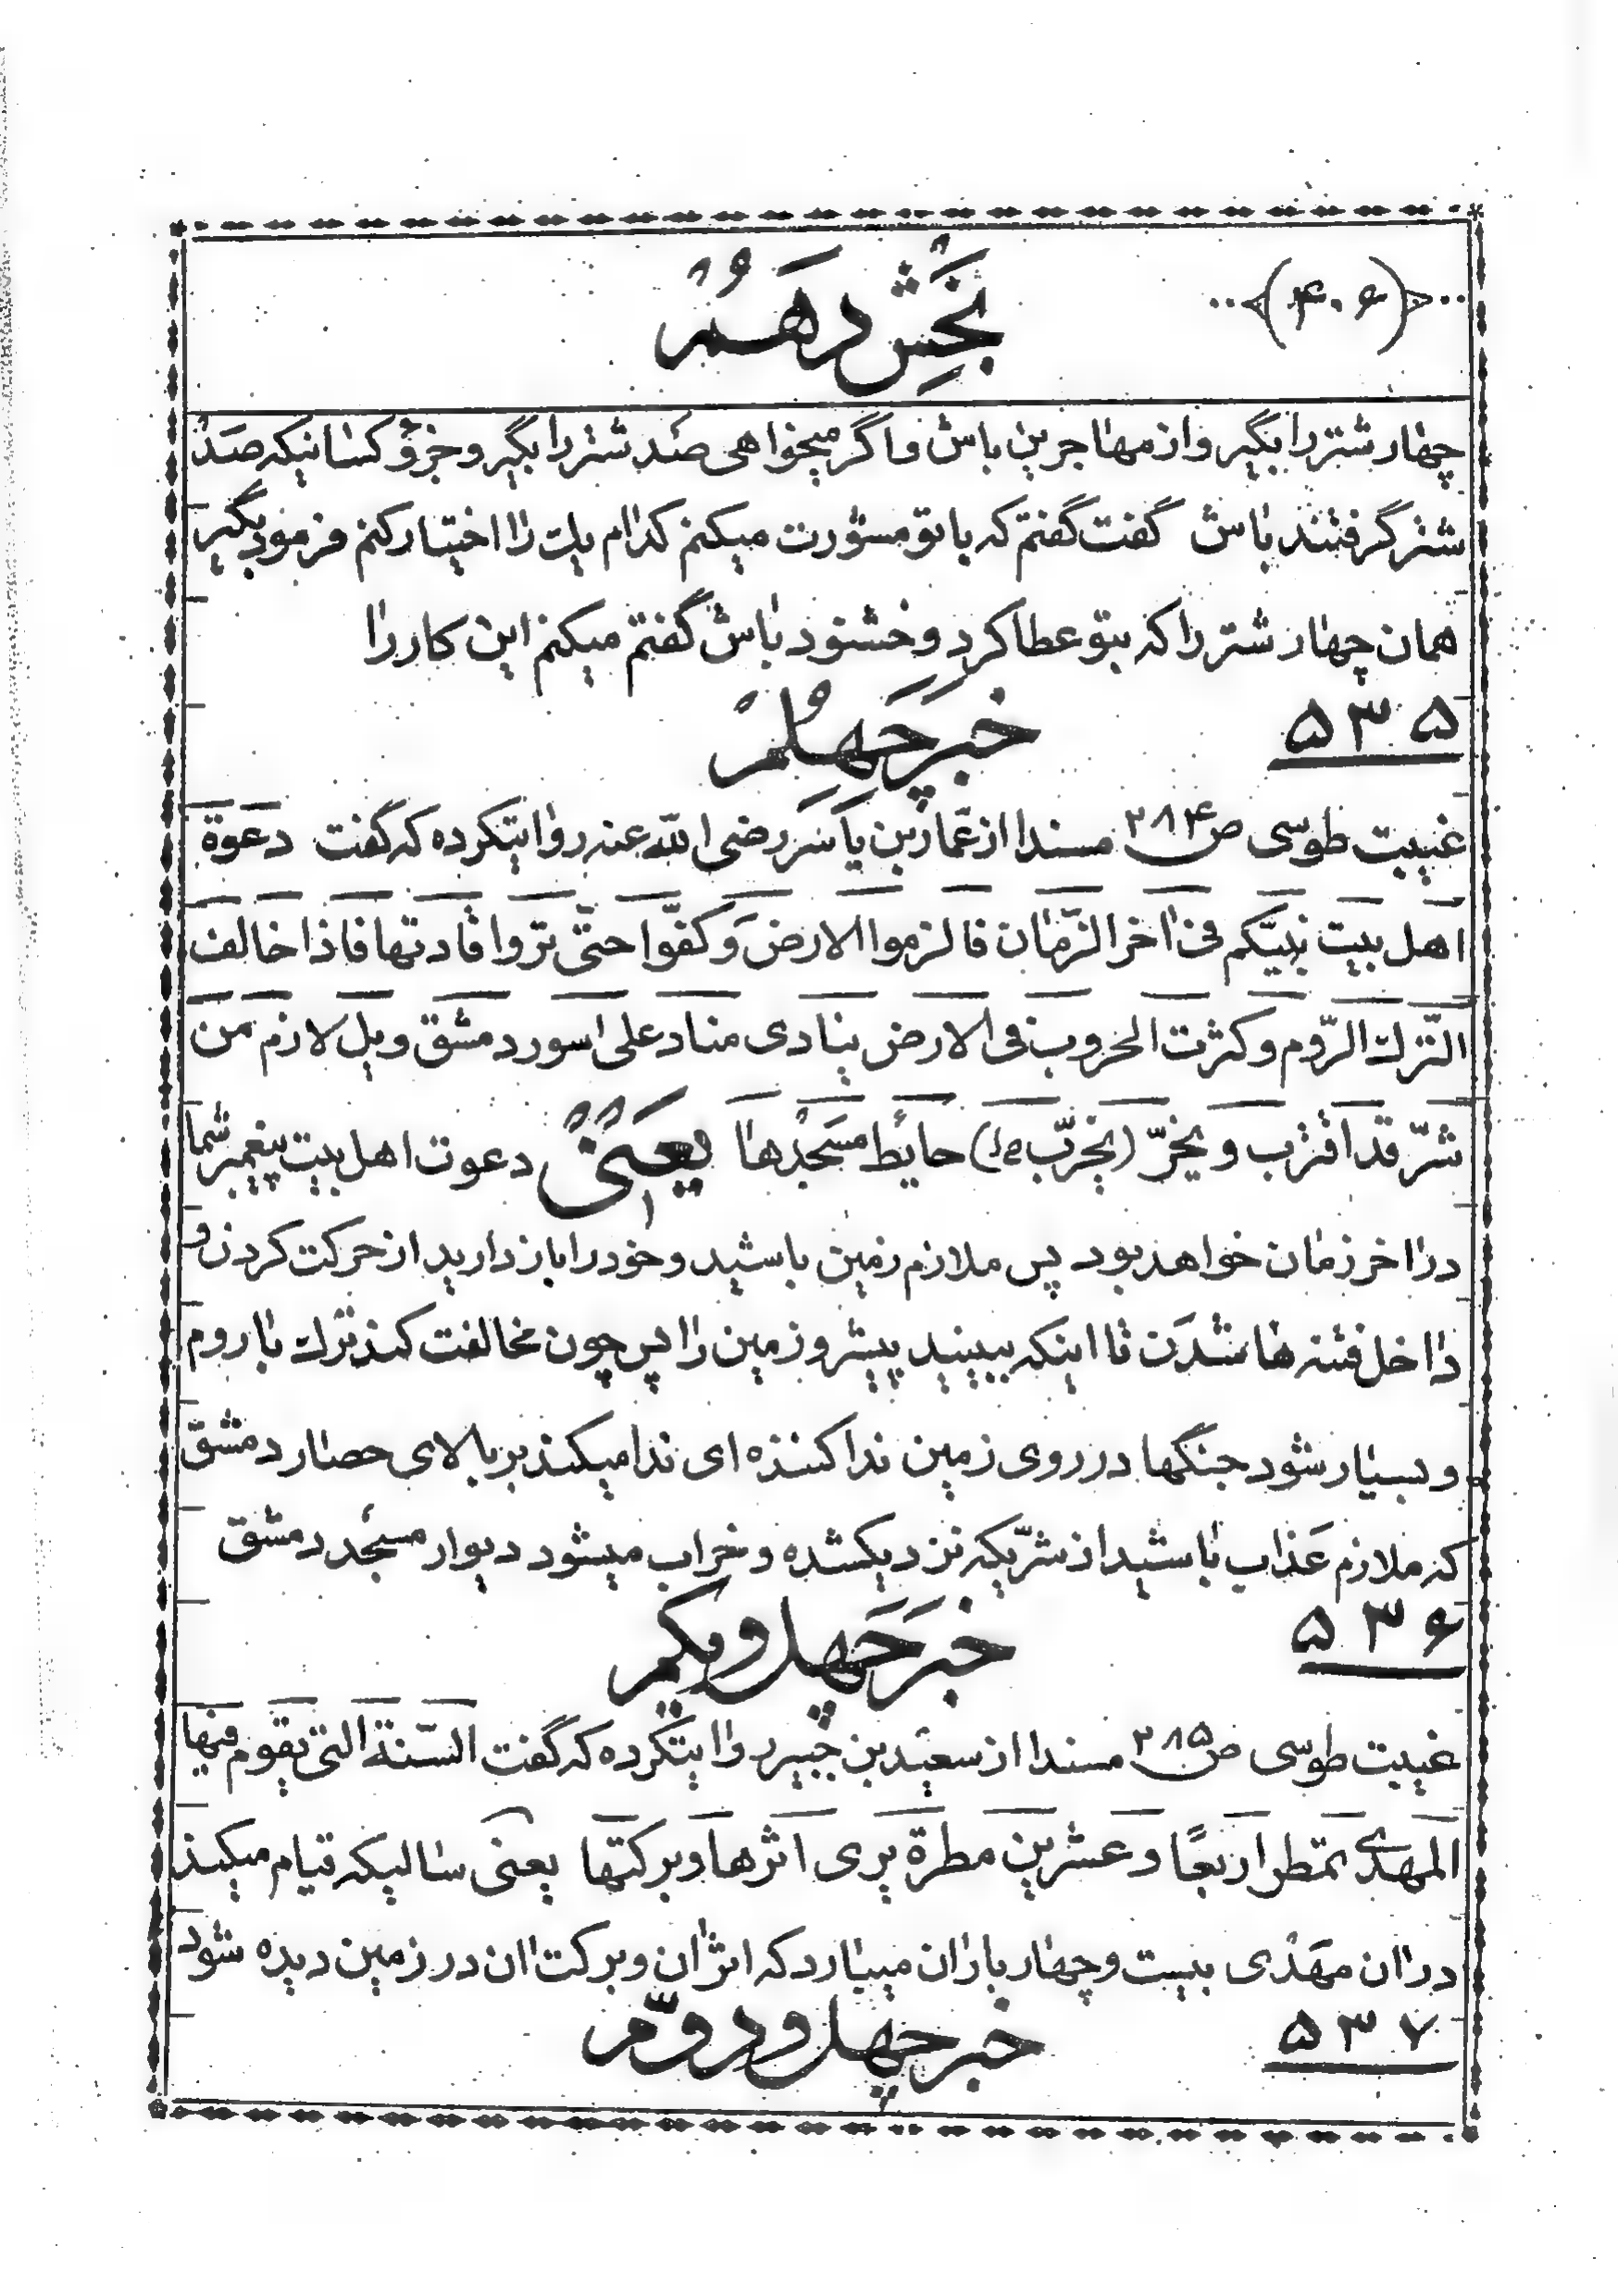 (۴۰۶)
بخش دهم
چهار شتر را بگیر و از مهاجرین باش و اگر میخواهی صد شتر را بگیر و جزو کسانیکه صد
شتر گرفتند باش گفت گفتم که با تو مشورت میکنم کدام یک را اختیار کنم فرمود بگیر
همان چهار شتر را که بتو عطا کرد و خشنود باش گفتم میکنم این کار را
۵۳۵
خبر چهلم
غیبت طوسی ص ۲۸۴ مسندا از عمّار بن یاسر رضی الله عنه روایتکرده که گفت دعوة
اهل بیت نبیّکم فی اخر الزّمان فالزموا الارض و کفّوا حتّی تروا قادتها فاذا خالف
التّرك الرّوم و کثرت الحروب فی الارض ینادی مناد علی سور دمشق ویل لازم من
شرّ قد اقترب و یخرّ (یخرّب ل) حایط مسجدها یعنی دعوت اهل بیت پیغمبر شما
در اخر زمان خواهد بود پس ملازم زمین باشید و خود را باز دارید از حرکت کردن و
داخل فتنه ها شدن تا اینکه ببینید پیشرو زمین را پس چون مخالفت کند ترک با روم
و بسیار شود جنگها در روی زمین ندا کننده ای ندا میکند بر بالای حصار دمشق
که ملازم عذاب باشید از شرّیکه نزدیکشده و خراب میشود دیوار مسجد دمشق
۵۳۶
خبر چهل و یکم
غیبت طوسی ص ۲۸۵ مسندا از سعید بن جبیر روایتکرده که گفت السّنة التی یقوم فیها
المهدی تمطر اربعًا و عشرین مطرة یری اثرها و برکتها یعنی سالیکه قیام میکند
در ان مهدی بیست و چهار باران میبارد که اثر ان و برکت ان در زمین دیده شود
۵۳۷
خبر چهل و دوّم